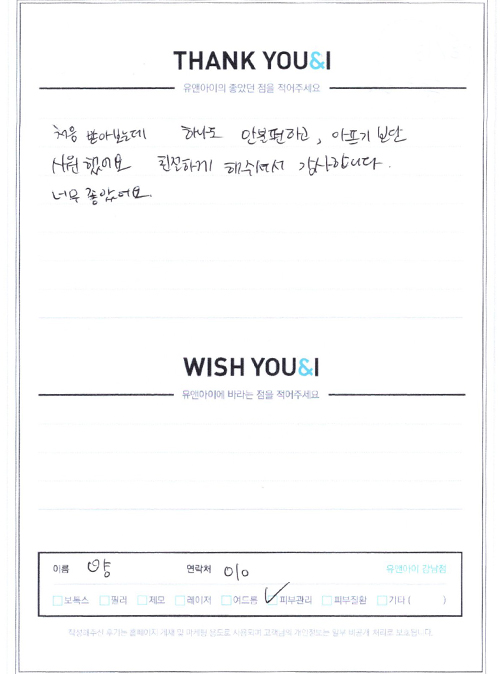 THANK YOU&I
유앤아이의 좋았던 점을 적어주세요
처음 받아보는데 하나도 안불편하고, 아프기 보단
시원했어요 친절하게 해주셔서 감사합니다.
너무 좋았어요.
WISH YOU&I
유앤아이에 바라는 점을 적어주세요
이름 양 연락처 010 유앤아이 강남점
보톡스 필러 제모 레이저 여드름 피부관리 피부질환 기타 ( )
작성해주신 후기는 홈페이지 게재 및 마케팅 용도로 사용되며 고객님의 개인정보는 일부 비공개 처리로 보호됩니다.